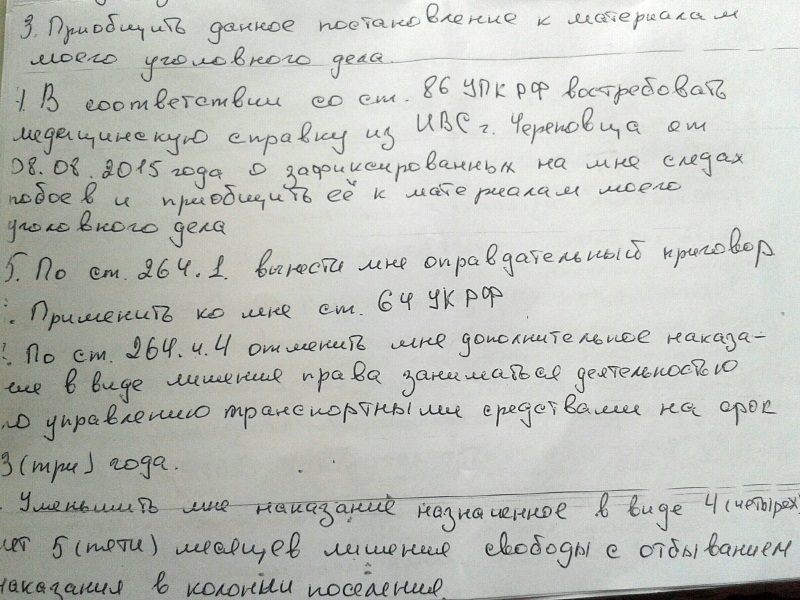 3. Приобщить данное постановление к материалам
моего уголовного дела.
4. В соответствии со ст. 86 УПК РФ востребовать
медецинскую справку из ИВС г. Череповца от
08.08.2015 года о зафиксированных на мне следах
побоев и приобщить её к материалам моего
уголовного дела
5. По ст. 264.1. вынести мне оправдательный приговор
. Применить ко мне ст. 64 УК РФ
. По ст. 264.ч.4 отменить мне дополнительное наказа-
ние в виде лишения права заниматься деятельностью
по управлению транспортными средствами на срок
3 (три) года.
. Уменьшить мне наказание назначенное в виде 4 (четырех)
лет 5 (пяти) месяцев лишения свободы с отбыванием
наказания в колонии поселения.